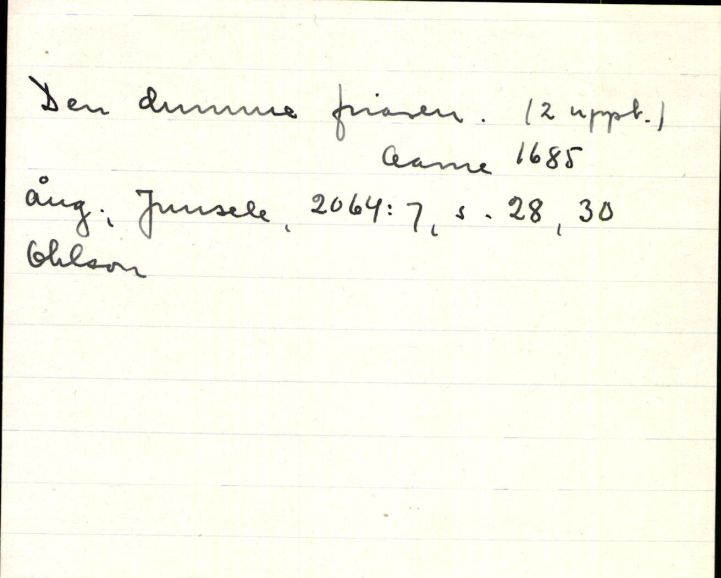 Den dumme friaren. (2 uppt.)
Aarne 1685
Ång., Junsele, 2064:7, s. 28, 30
Ohlson